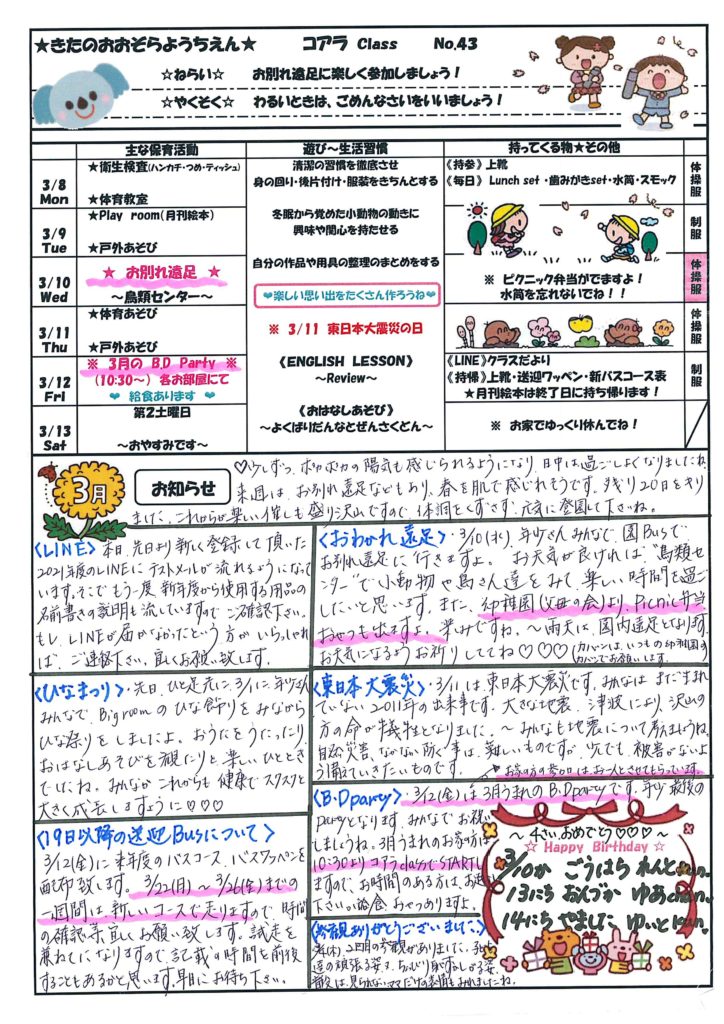 ★きたのおおぞらようちえん★ コアラ Class No.43
☆ねらい☆ お別れ遠足に楽しく参加しましょう！
☆やくそく☆ わるいときは、ごめんなさいをいいましょう！
主な保育活動 遊び～生活習慣 持ってくる物★その他
3/8 Mon
★衛生検査(ハンカチ・つめ・ティッシュ)
★体育教室
3/9 Tue
★Play room(月刊絵本)
★戸外あそび
3/10 Wed
★ お別れ遠足 ★
～鳥類センター～
3/11 Thu
★体育あそび
★戸外あそび
3/12 Fri
※ 3月の B.D Party ※
(10:30～) 各お部屋にて
❤ 給食あります ❤
3/13 Sat
第2土曜日
～おやすみです～
清潔の習慣を徹底させ
身の回り・後片付け・服装をきちんとする
冬眠から覚めた小動物の動きに
興味や関心を持たせる
自分の作品や用具の整理のまとめをする
❤楽しい思い出をたくさん作ろうね❤
※ 3/11 東日本大震災の日
《ENGLISH LESSON》
～Review～
《おはなしあそび》
～よくばりだんなとぜんさくどん～
《持参》上靴
《毎日》 Lunch set ・歯みがきset・水筒・スモック
※ ピクニック弁当がでますよ！
水筒を忘れないでね！！
《LINE》クラスだより
《持帰》上靴・送迎ワッペン・新バスコース表
★月刊絵本は終了日に持ち帰ります！
※ お家でゆっくり休んでね！
体操服
制服
体操服
体操服
制服
3月 お知らせ
♡少しずつ、ポカポカの陽気も感じられるようになり、日中は過ごしよくなりましたね。
来週は、お別れ遠足などもあり、春を肌で感じれそうです。残り20日をきり
ました、これからが楽しい催しも盛り沢山ですので、体調をくずさず、元気に登園して下さいね。
〈LINE〉本日、先日より新しく登録して頂いた
2021年度のLINEにテストメールが流れるようになって
います。そこでもう一度、新年度から使用する用品の
名前書きの説明も流していますのでご確認下さい。
もし、LINEが届かなかったという方がいらっしゃれ
ば、ご連絡下さい。良くお願い致します。
〈おわかれ遠足〉・3/10(水)、年少さんみんなで、園Busで
お別れ遠足に行きますよ。お天気が良ければ"鳥類セ
ンター"で小動物や鳥さん達をみて楽しい時間を過ご
したいと思います。また、幼稚園(父母の会)より、Picnic弁当
おやつも出ますよ。楽みですね。～雨天は、園内遠足となります。
お天気になるようお祈りしててね♡♡♡(カバンは、いつもの幼稚園の
カバンでお願いします。
〈ひなまつり〉・先日、ひと足先に、3/1に、年少さん
みんなで、Big roomのひな飾りをみながら
ひな祭りをしましたよ。おうたをうたったり
おはなしあそびを観たりと楽しいひととき
でしたね。みんながこれからも健康でスクスクと
大きく成長しますように♡♡♡
〈東日本大震災〉・3/11は、東日本大震災です。みんなはまだ生まれ
ていない2011年の出来事です。大きな地震、津波により、沢山の
方の命が犠牲となりました。～みんなも地震について考えましょうね。
自然災害、なかなか防ぐ事は、難しいものですが、少しでも、被害がないよ
う備えていきたいものです。
お家の方の参加は、お一人とさせてもらっています。
〈B.D party〉・3/12(金)は3月うまれのB.D partyです。年少最後の
partyとなります。みんなでお祝い
しましょうね。3月うまれのお家の方は
10:30よりコアラclassでSTARTし
ますので、お時間のある方は、お越し
下さい。給食、おやつありますよ。
～4さい、おめでとう♡♡♡～
☆ Happy Birthday ☆
3/10か ごうはら れんとkun.
13にち おんづか ゆあchan.
14にち やました ゆいとkun.
〈19日以降の送迎Busについて〉
3/12(金)に来年度のバスコース、バスワッペンを
配布致します。3/22(月)～3/26(金)までの
一週間は、新しいコースで走りますので、時間
の確認等、良くお願い致します。試走を
兼ねてになりますので記載の時間と前後
することもあるかと思います。早目にお待ち下さい。
〈参観ありがとうございました。〉
2回目の参観がありました。
達の頑張る姿、ちょっぴり恥ずかしがる姿、
普段は、見られないママだけの表情もみれましたね。